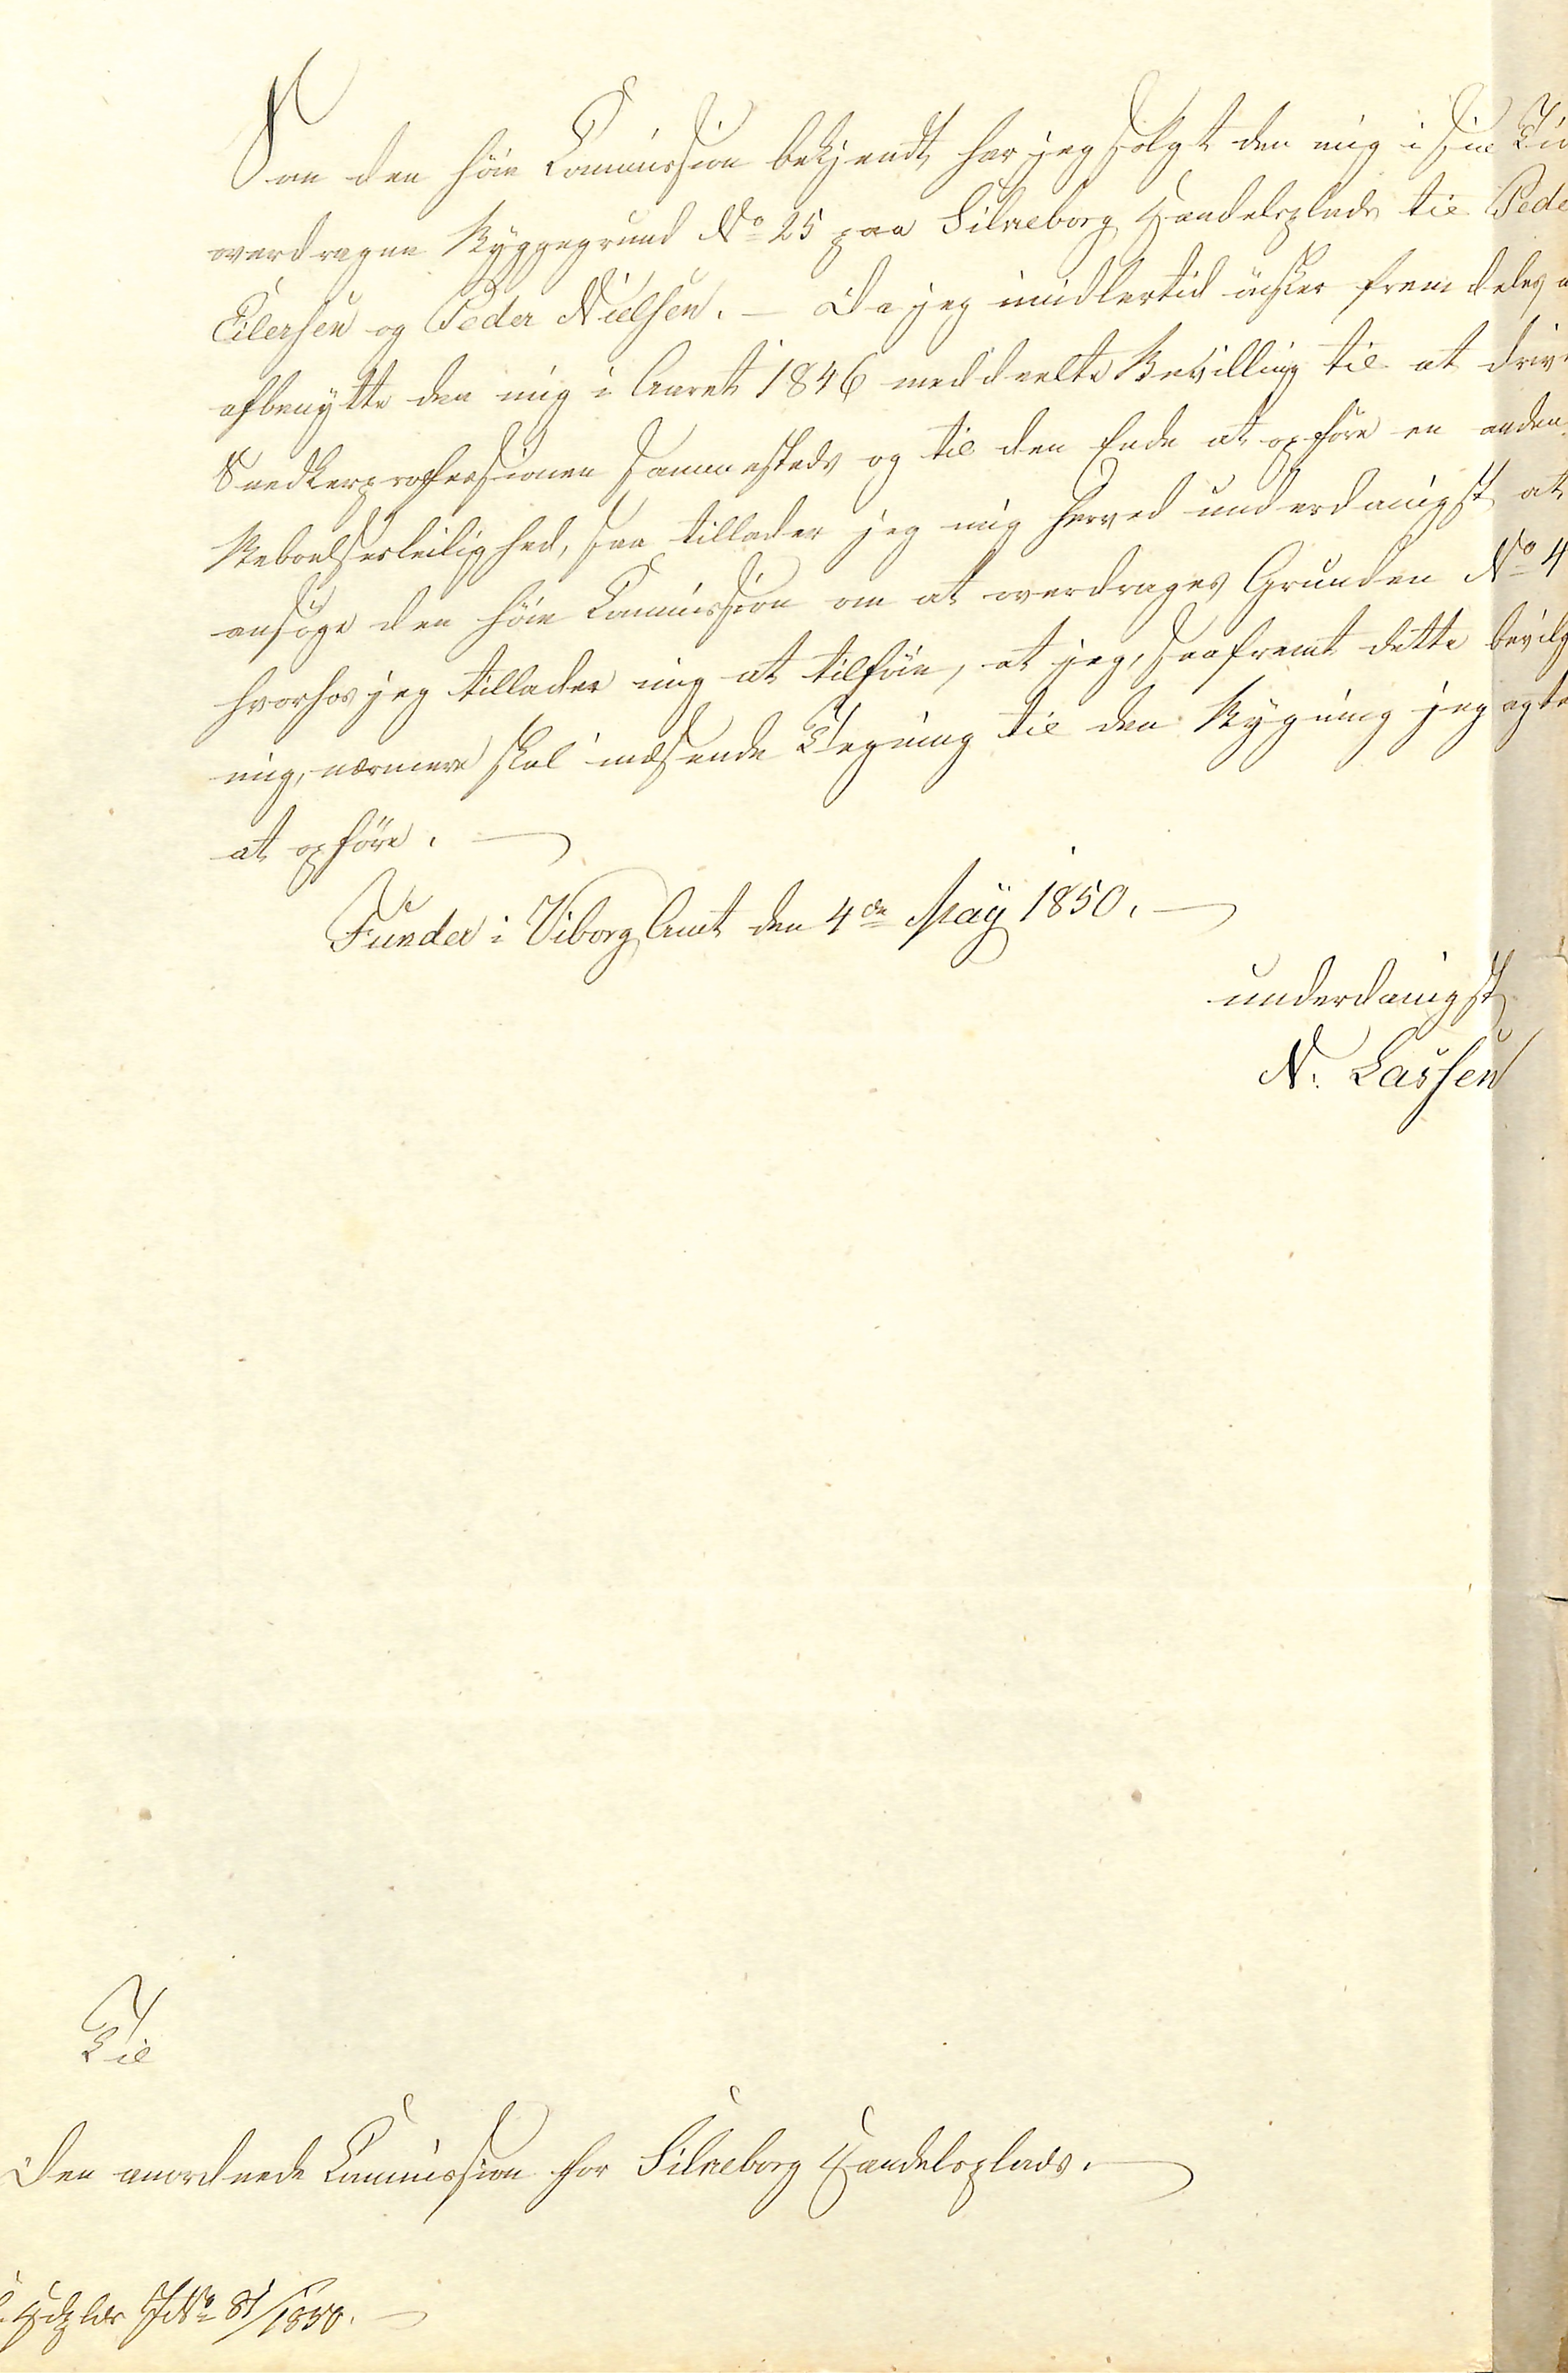 Som den höie Commission bekjendt, har jeg solgt den mig i sin Tid
overdragne Byggegrund No 25 paa Silkeborg Handelsplads til Pede
Eilersen og Peder Nielsen. — Da jeg imidlertid önsker fremdeles a
afbenytte den mig i Aaret 1846 meddeelte Bevilling til at driv
Snedkerprofessionen sammesteds og til den Ende at opföre en anden
Beboelsesleilighed, saa tillader jeg mig herved underdanigst at
ansöge den höie Commission om at overdrages Grunden No 4
hvorhos jeg tillader mig at tilföie, at jeg, saafremt dette bevilg
mig, nærmere skal indsende Tegning til den Bygning jeg agte
at opföre. —
Funder i Viborg Amt den 4de May 1850. —
underdanigst
N. Lassen
Til
Den anordnede Commission for Silkeborg Handelsplads. —
Hdplds JNo 81/1850. —